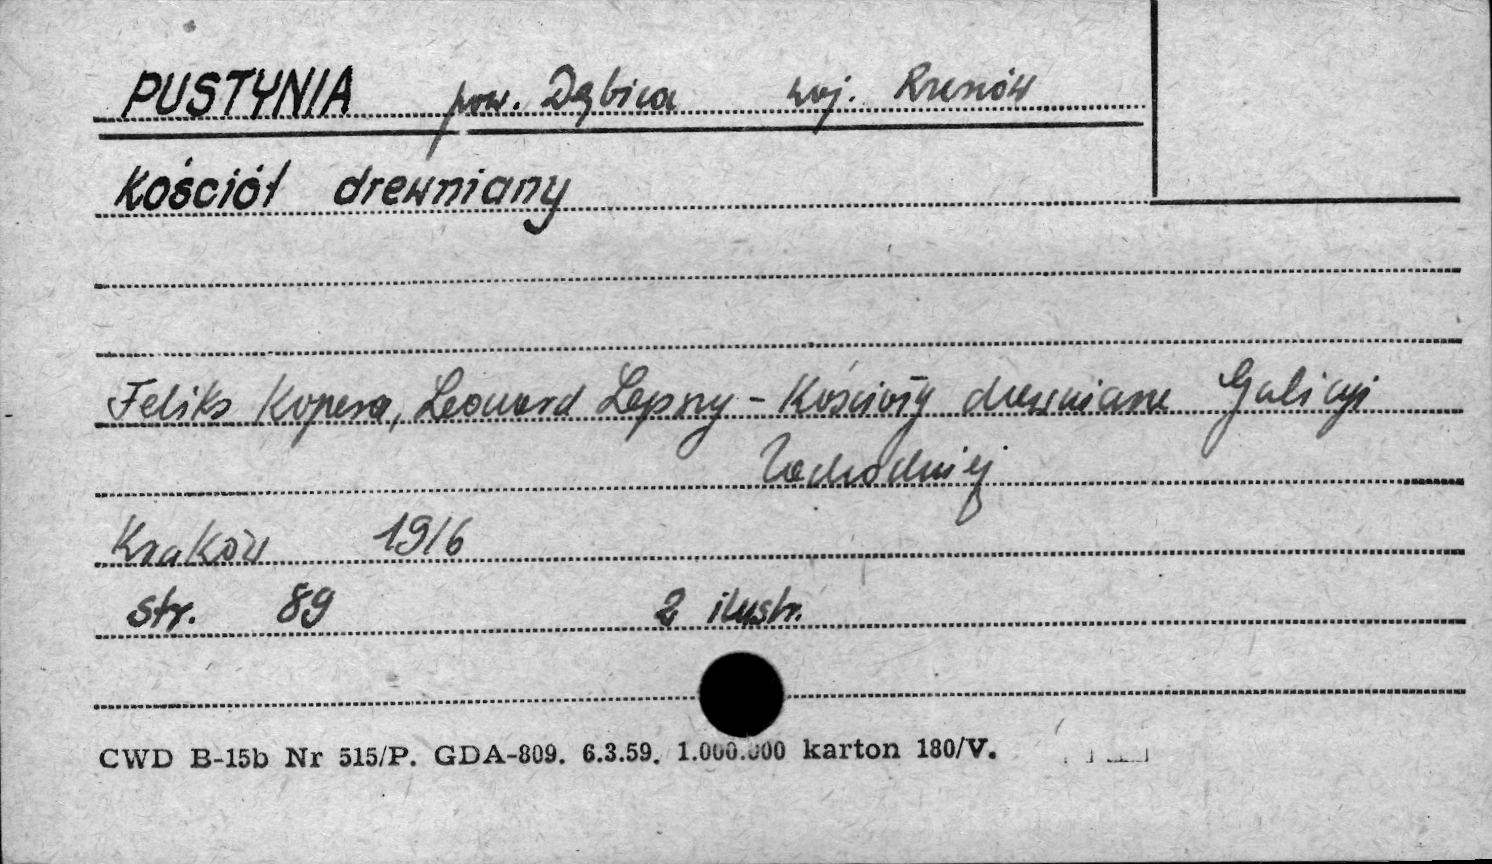 PUSTYNIA pow. Dębica woj. Rzeszów
Kościół drewniany
Feliks Kopera, Leonard Lepszy - Kościoły drewniane Galicyi
Zachodniej
Kraków 1916
str. 89 2 ilustr.
CWD B-15b Nr 515/P. GDA-809. 6.3.59. 1.000.000 karton 180/V.